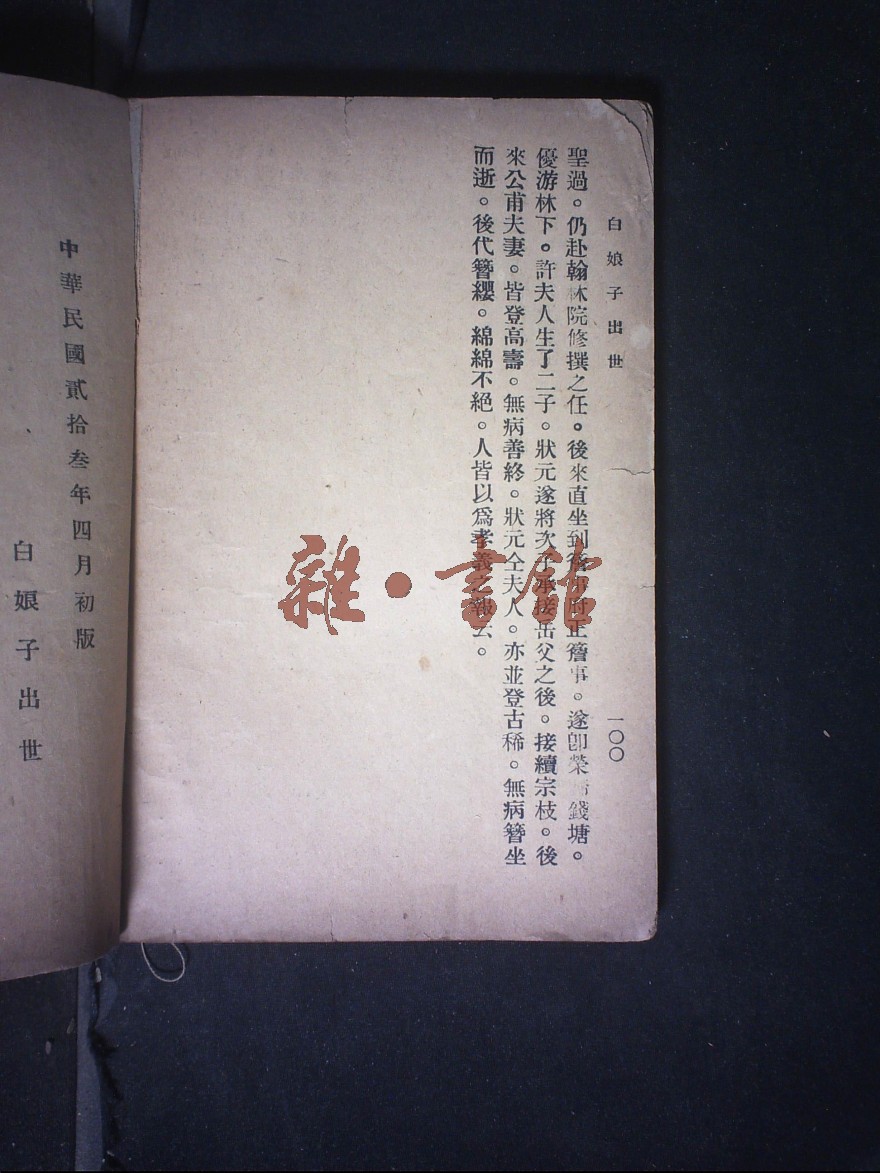 白娘子出世
一〇〇
聖過。仍赴翰林院修撰之任。後來直坐到詹事府正詹事。遂卽榮歸錢塘。
優游林下。許夫人生了二子。狀元遂將次子承接岳父之後。接續宗枝。後
來公甫夫妻。皆登高壽。無病善終。狀元仝夫人。亦並登古稀。無病簪坐
而逝。後代簪纓。綿綿不絕。人皆以爲孝義之報云。
雜·書館
中華民國貳拾叁年四月初版
白娘子出世